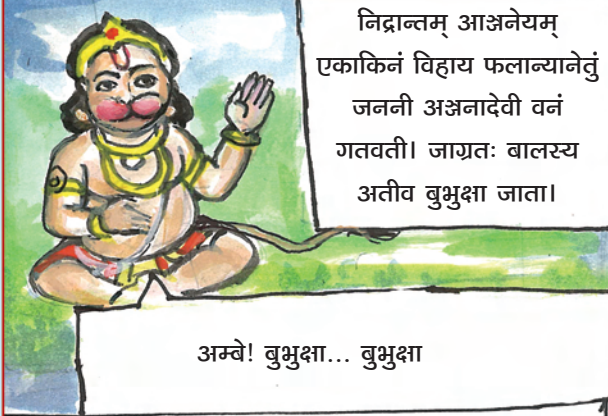 निद्रान्तम् आञ्जनेयम्
एकाकिनं विहाय फलान्यानेतुं
जननी अञ्जनादेवी वनं
गतवती। जाग्रतः बालस्य
अतीव बुभुक्षा जाता।
अम्बे! बुभुक्षा... बुभुक्षा